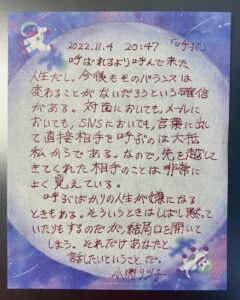 2022.11.4 20:47 「呼ぶ」
呼ばれるより呼んで来た
人生だし、今後もそのバランスは
変わることがないだろうという確信
がある。対面においても、メールに
おいても、SNSにおいても、言葉に出し
て直接相手を呼ぶのは大抵
私からである。なので、先を越して
きてくれた相手のことは非常に
よく見えている。
呼ぶばかりの人生が嫌になる
ときもある。そういうときはしばし黙って
いたりもするのだが、結局口を開いて
しまう。それだけあなたと
話したいということだ。